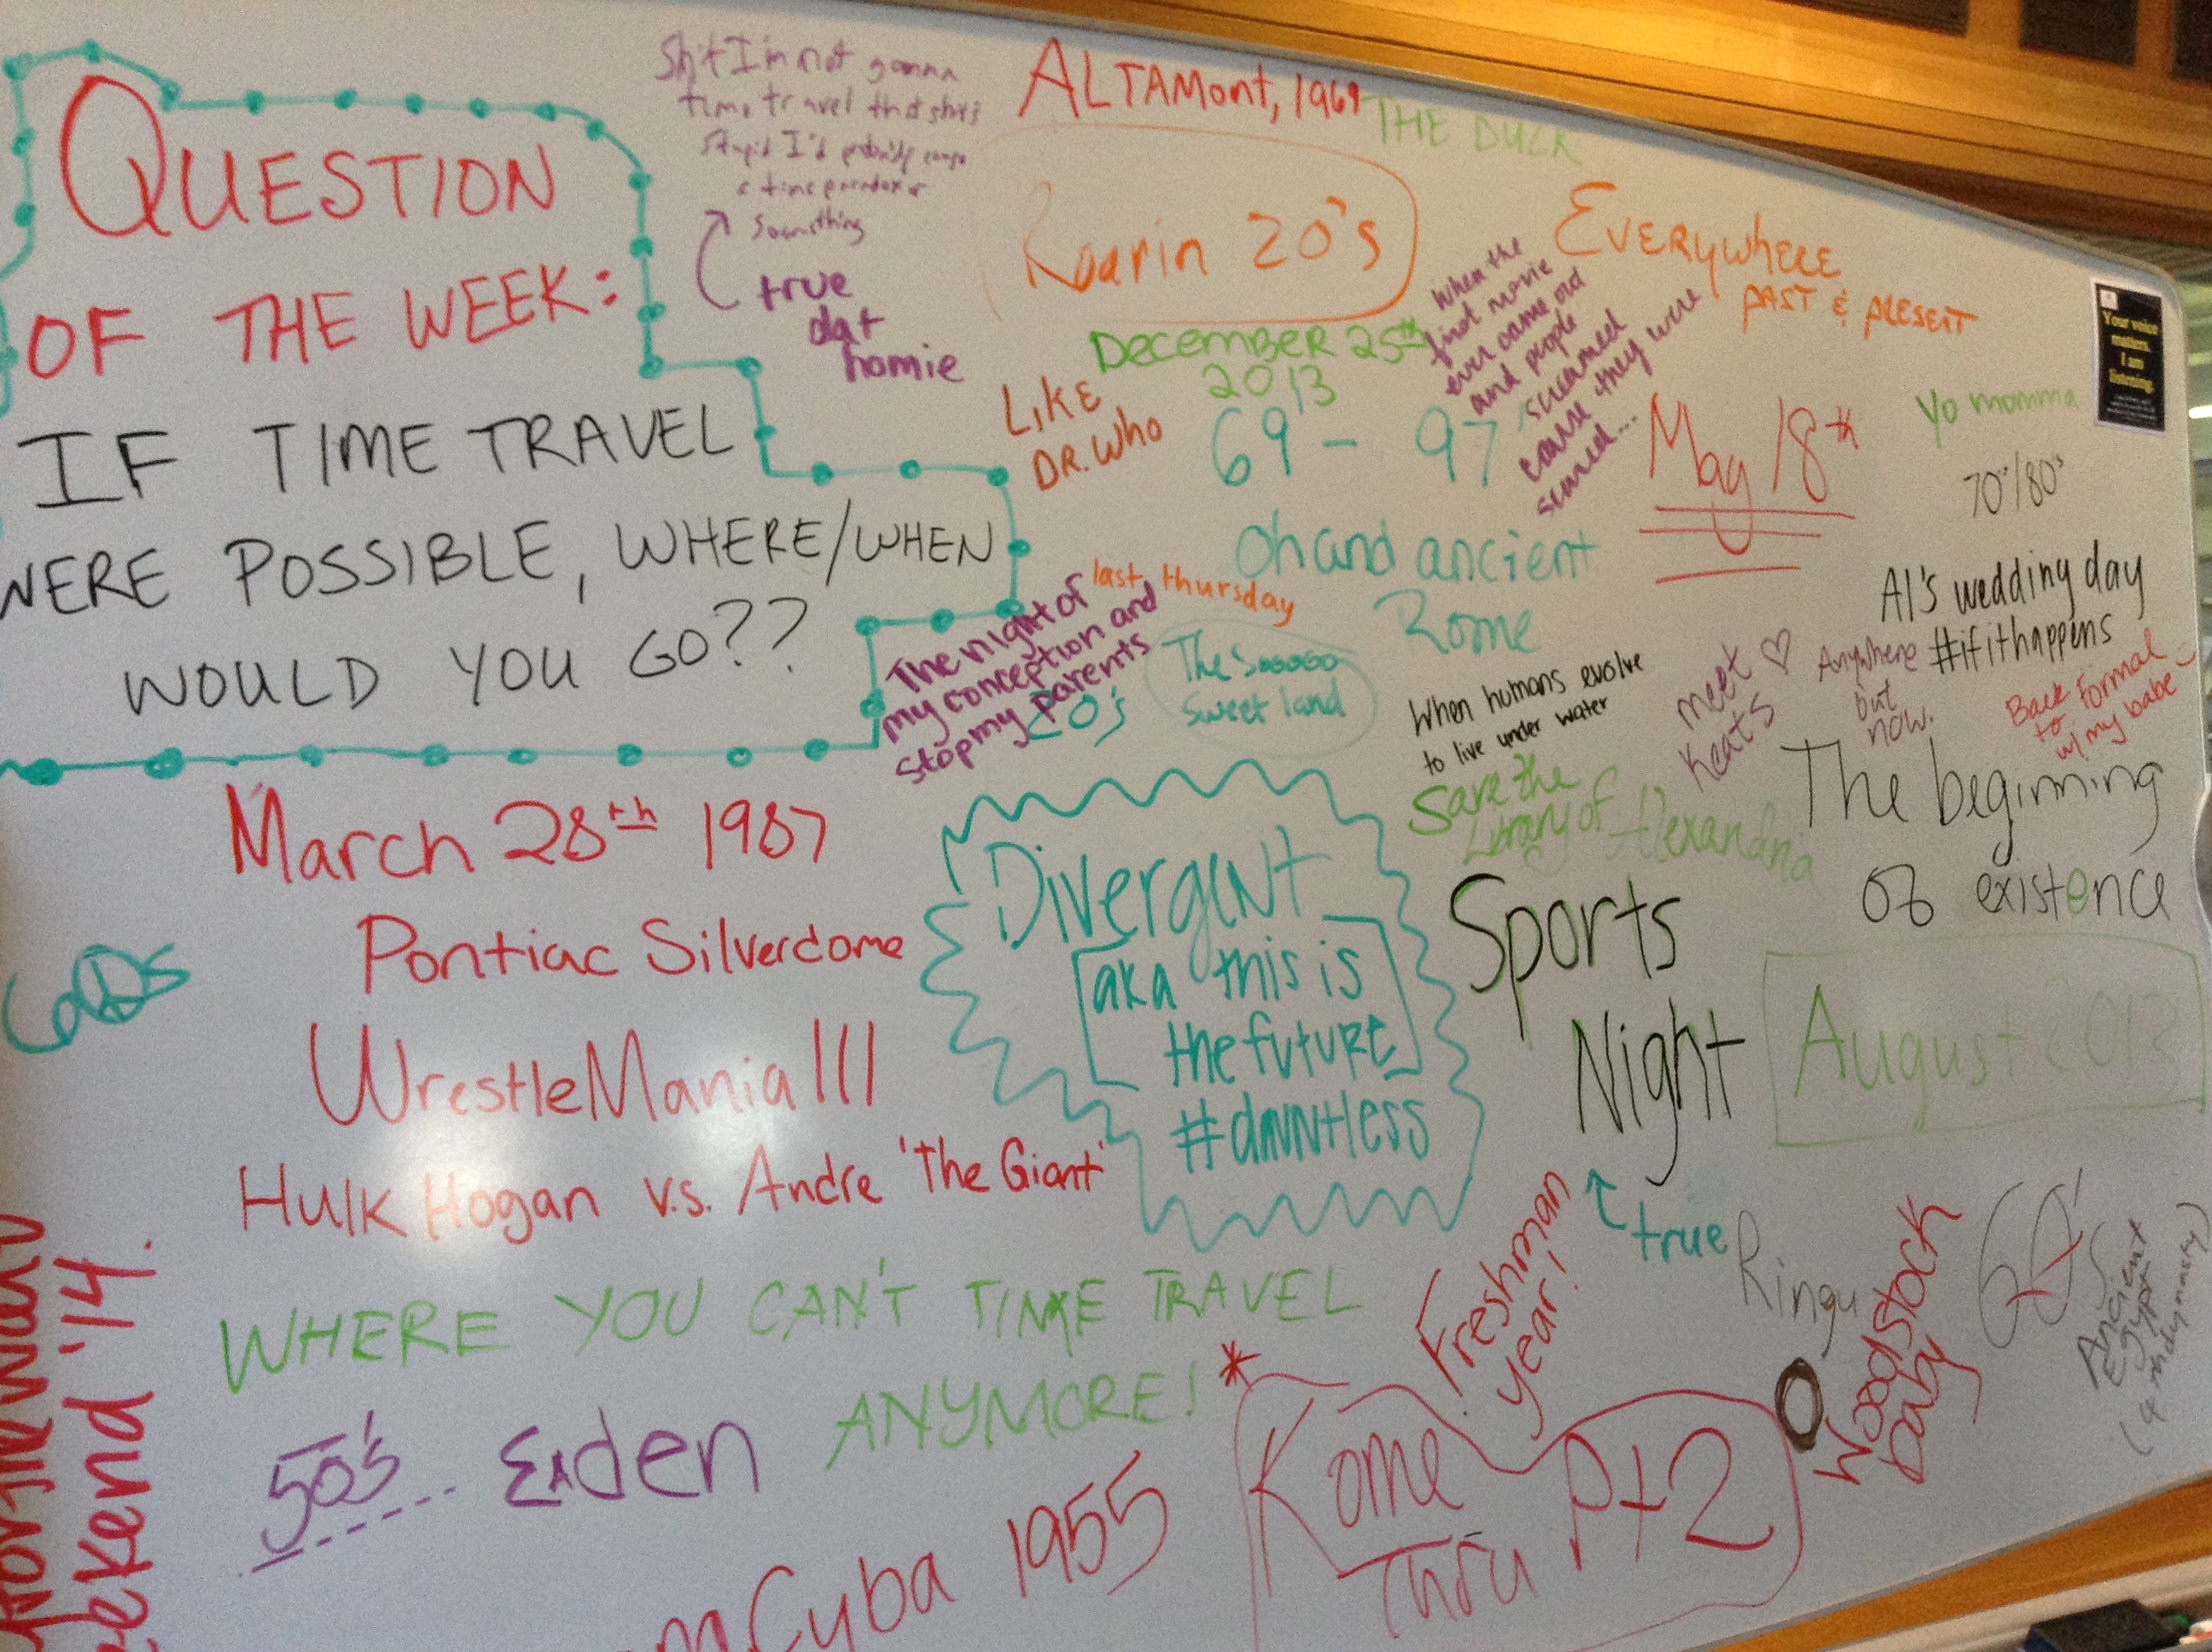 QUESTION
OF THE WEEK:
IF TIME TRAVEL
WERE POSSIBLE, WHERE/WHEN
WOULD YOU GO??
Shit I'm not gonna
time travel that shits
stupid I'd probably cause
a time paradox or
something
true
dat
homie
ALTAMont, 1969
THE DUCK
Roarin 20's
EVERYwhERE
PAST & PRESENT
DECEMBER 25th
2013
When the
first movie
ever came out
and people
screamed
cause they were
scared...
LIKE
DR. Who
69 - 97
May 18th
Yo momma
70's/80's
Your voice
matters.
I am
listening.
oh and ancient
Rome
last thursday
The night of
my conception and
stop my parents
20's
The Sooooo
Sweet land
Al's wedding day
#ifithappens
When humans evolve
to live under water
meet ♡
Keats
Anywhere
but
now.
Back
to formal
w/ my babe
Save the
Library of Alexandria
The beginning
of existence
March 28th 1987
Pontiac Silverdome
WrestleMania III
Hulk Hogan v.s. Andre 'The Giant'
Divergent
[aka this is
the future]
#dauntless
Sports
Night
true
August 2013
WHERE YOU CAN'T TIME TRAVEL
ANYMORE!
50's
Eden
Freshman
year!
Ringu
Woodstock
baby
60's
Ancient
Egypt
(4th dynasty)
Cuba 1955
* Kome
Thru Pt 2
ekend '14.